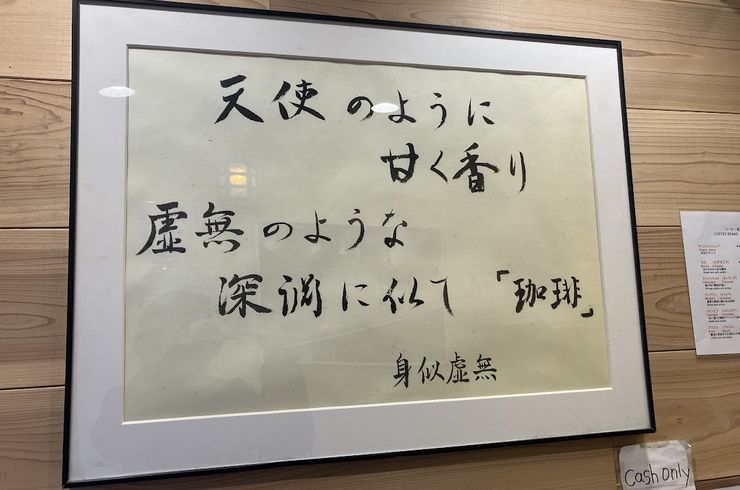 天使のように
甘く香り
虚無のような
深渕に似て「珈琲」
身似虚無
COFFEE BEANS
Cash only